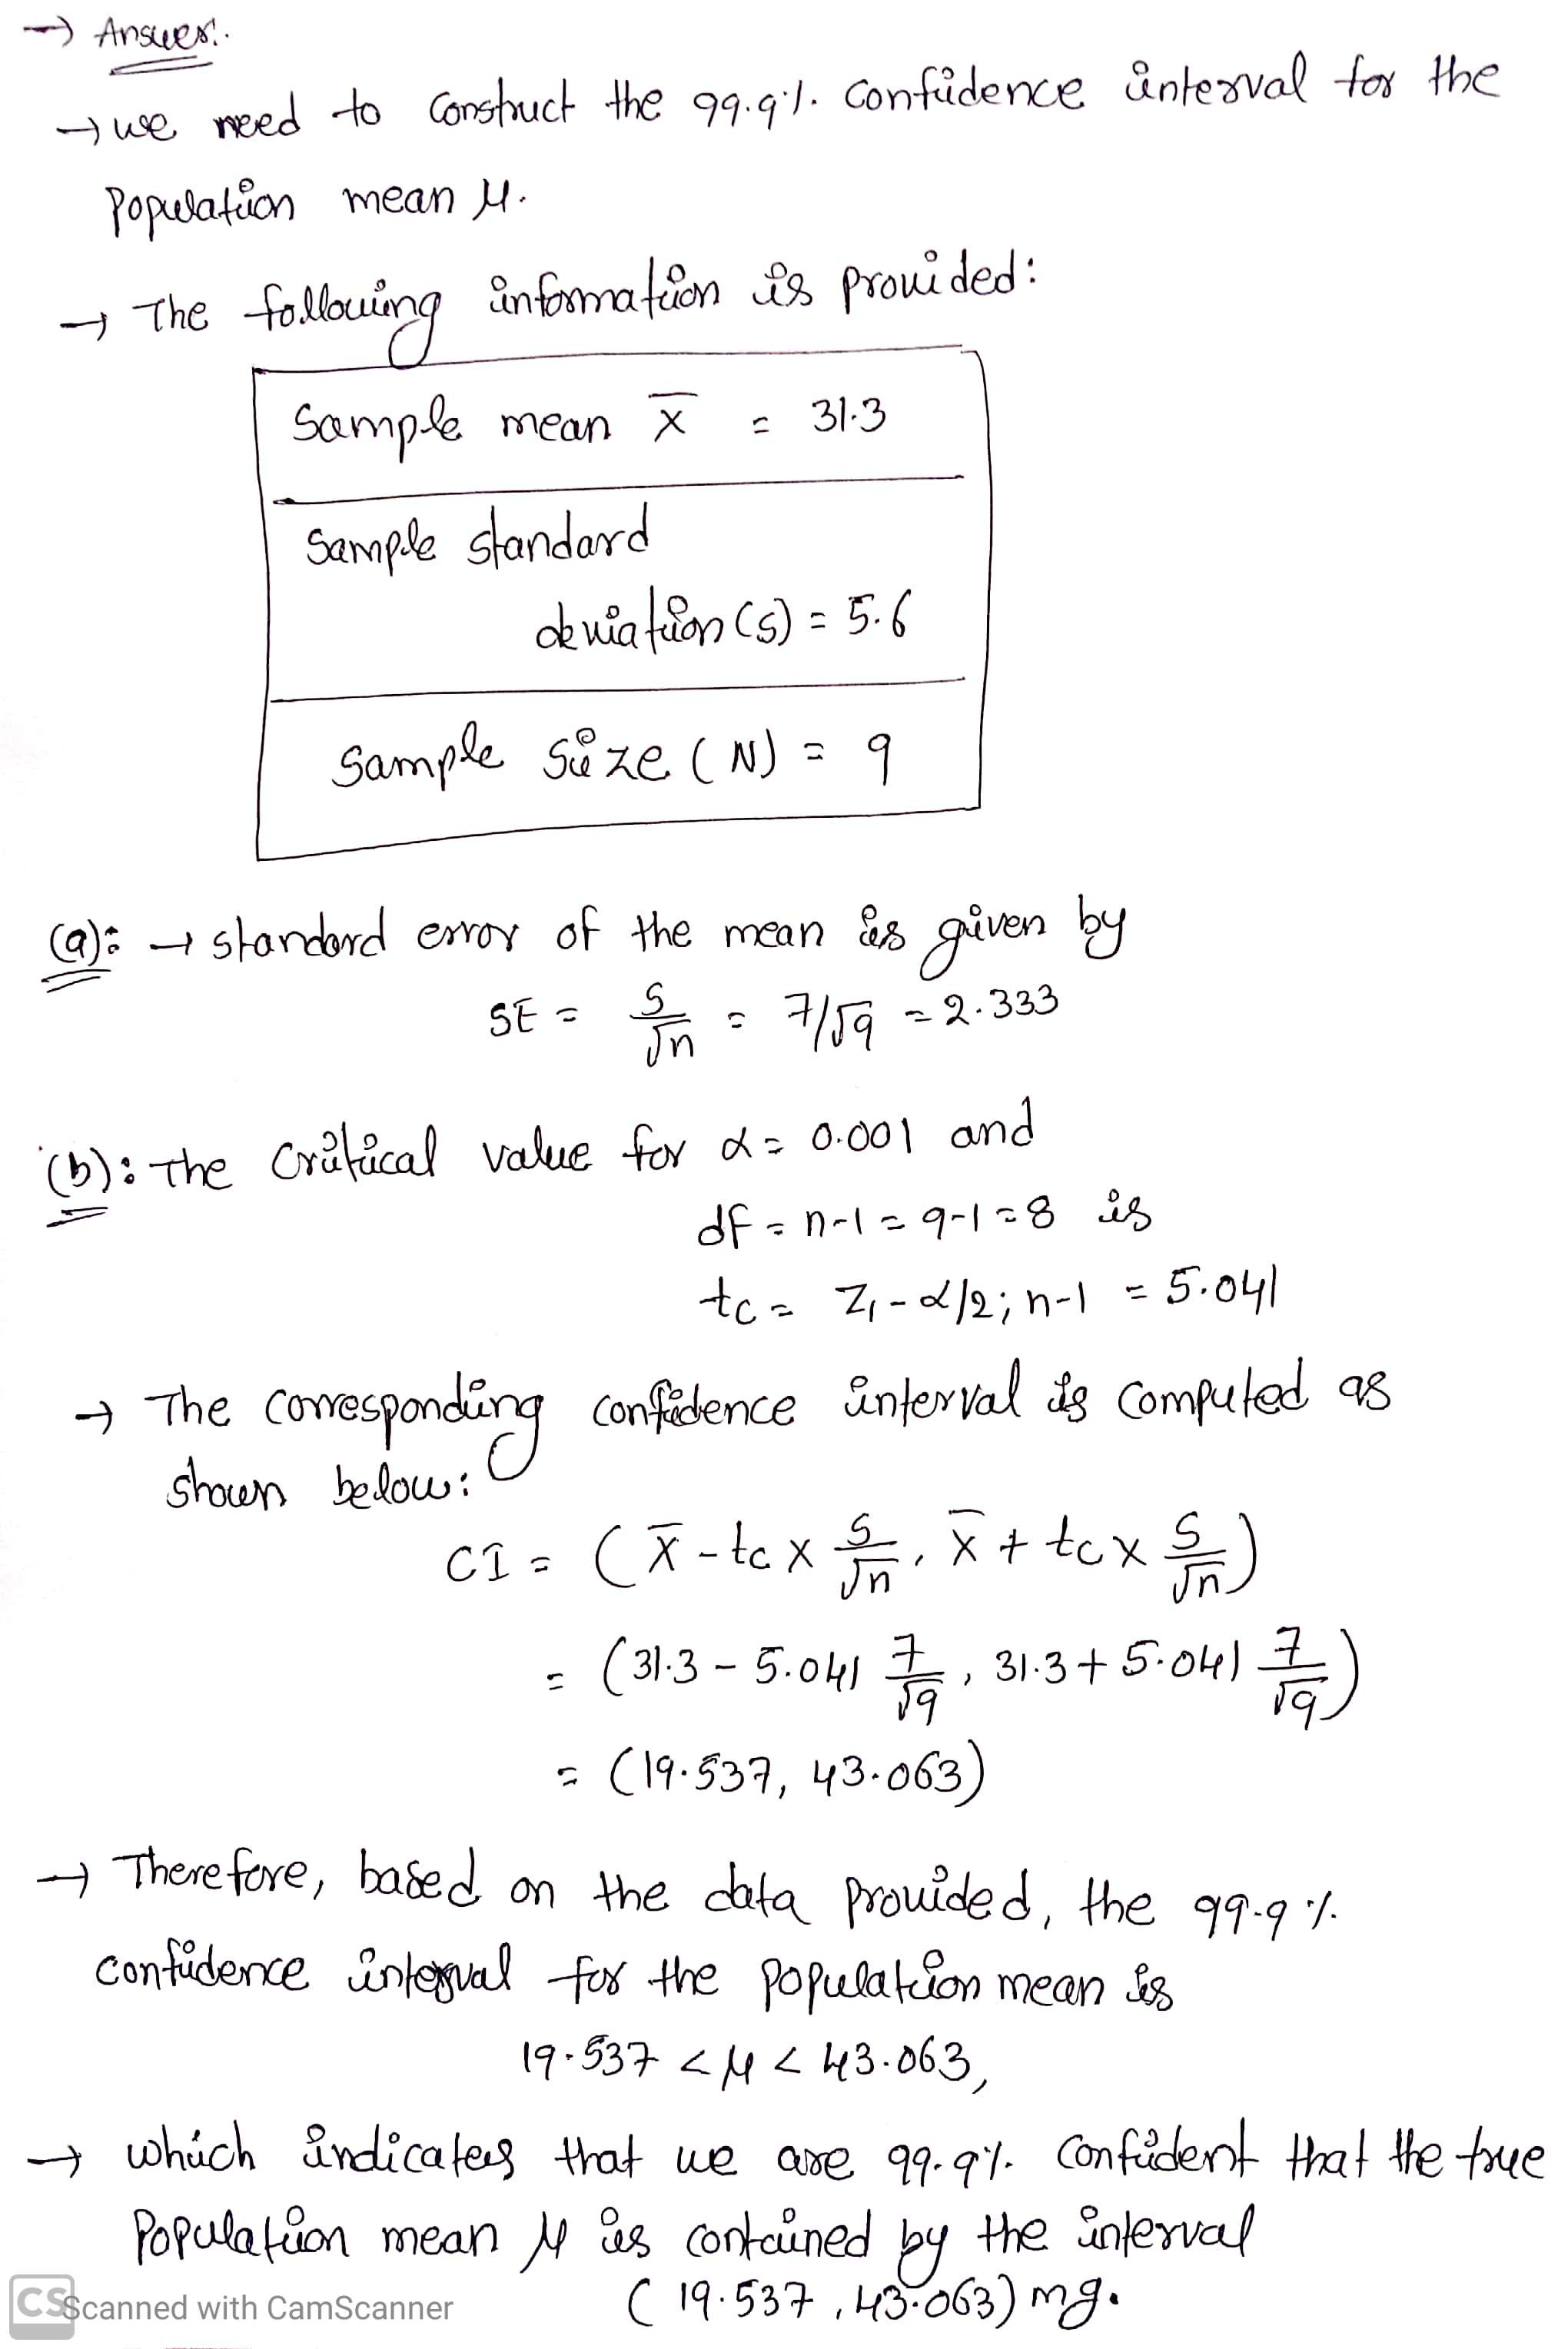 → Answer:.
→ we need to construct the 99.9%. confidence interval for the
Population mean μ.
→ The following information is provided:
Sample mean x̄ = 31.3
Sample standard
deviation (s) = 5.6
Sample size (N) = 9
(a): → standard error of the mean is given by
SE = s/√n = 7/√9 = 2.333
(b): The critical value for α = 0.001 and
df = n-1 = 9-1 = 8 is
tc = Z₁-α/2; n-1 = 5.041
→ The corresponding confidence interval is computed as
shown below:
CI = (x̄ - tc × s/√n, x̄ + tc × s/√n)
= (31.3 - 5.041 7/√9, 31.3 + 5.041 7/√9)
= (19.537, 43.063)
→ Therefore, based on the data provided, the 99.9%.
confidence interval for the population mean is
19.537 < μ < 43.063,
→ which indicates that we are 99.9%. confident that the true
Population mean μ is contained by the interval
(19.537, 43.063) mg.
CS Scanned with CamScanner